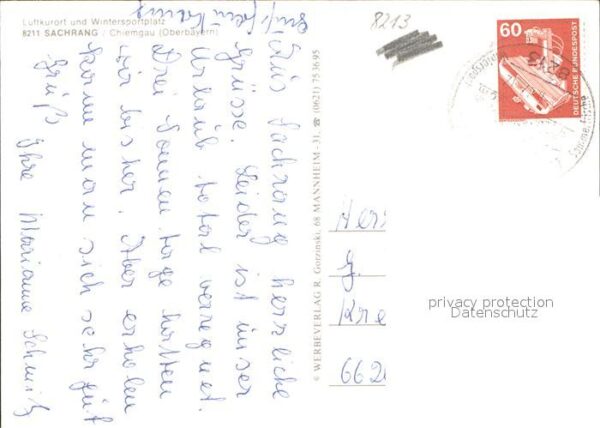 Luftkurort und Wintersportplatz
8211 SACHRANG / Chiemgau (Oberbayern)
Aus Sachrang herzliche
Grüsse. Leider ist unser
Urlaub total verregnet.
Drei Sonnentage hatten
wir bisher. Aber erholen
kann man sich sehr gut
Gruß
Ihre Marianne Schmitz
© WERBEVERLAG R. Gorzinski, 68 MANNHEIM-31, ☎ (0621) 753695
8213
60
DEUTSCHE BUNDESPOST
8213
Herr
J.
Kre
662
privacy protection
Datenschutz